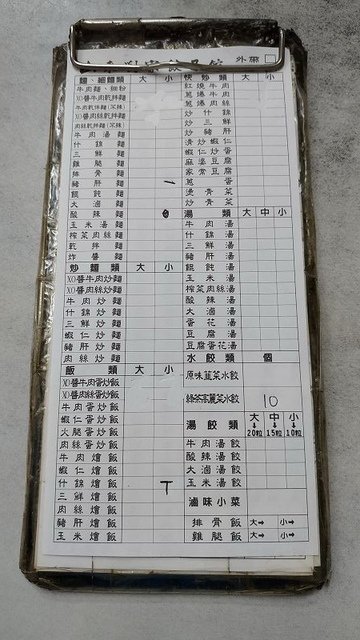 外帶
麵、細麵類 大 小
牛肉麵、細粉
XO醬牛肉乾拌麵
XO醬肉絲乾拌麵
牛肉湯麵
什錦麵
三鮮麵
雞腿麵
排骨麵
豬肝麵
餛飩麵
大滷麵
酸辣麵
玉米湯麵
榨菜肉絲麵
乾拌麵
炸醬麵
炒麵類 大 小
XO醬牛肉炒麵
XO醬肉絲炒麵
牛肉炒麵
什錦炒麵
三鮮炒麵
蝦仁炒麵
豬肝炒麵
肉絲炒麵
飯類 大 小
XO醬牛肉蛋炒飯
XO醬肉絲蛋炒飯
牛肉蛋炒飯
蝦仁蛋炒飯
火腿蛋炒飯
肉絲蛋炒飯
牛肉燴飯
蝦仁燴飯
什錦燴飯
三鮮燴飯
肉絲燴飯
豬肝燴飯
玉米燴飯
快炒類 大 小
紅燒牛肉
蔥爆牛肉
蔥爆肉絲
炒什錦
炒三鮮
炒豬肝
清炒蝦仁
蝦仁炒蛋
麻婆豆腐
家常豆腐
蔥蛋
燙青菜
炒青菜
湯類 大 中 小
牛肉湯
什錦湯
三鮮湯
豬肝湯
餛飩湯
玉米湯
榨菜肉絲湯
酸辣湯
大滷湯
蛋花湯
豆腐湯
豆腐蛋花湯
水餃類 個
原味韮菜水餃
綠茶高麗菜水餃 10
湯餃類 大 中 小
20粒 15粒 10粒
牛肉湯餃
酸辣湯餃
大滷湯餃
玉米湯餃
滷味小菜
排骨飯 大⇒ 小⇒
雞腿飯 大⇒ 小⇒